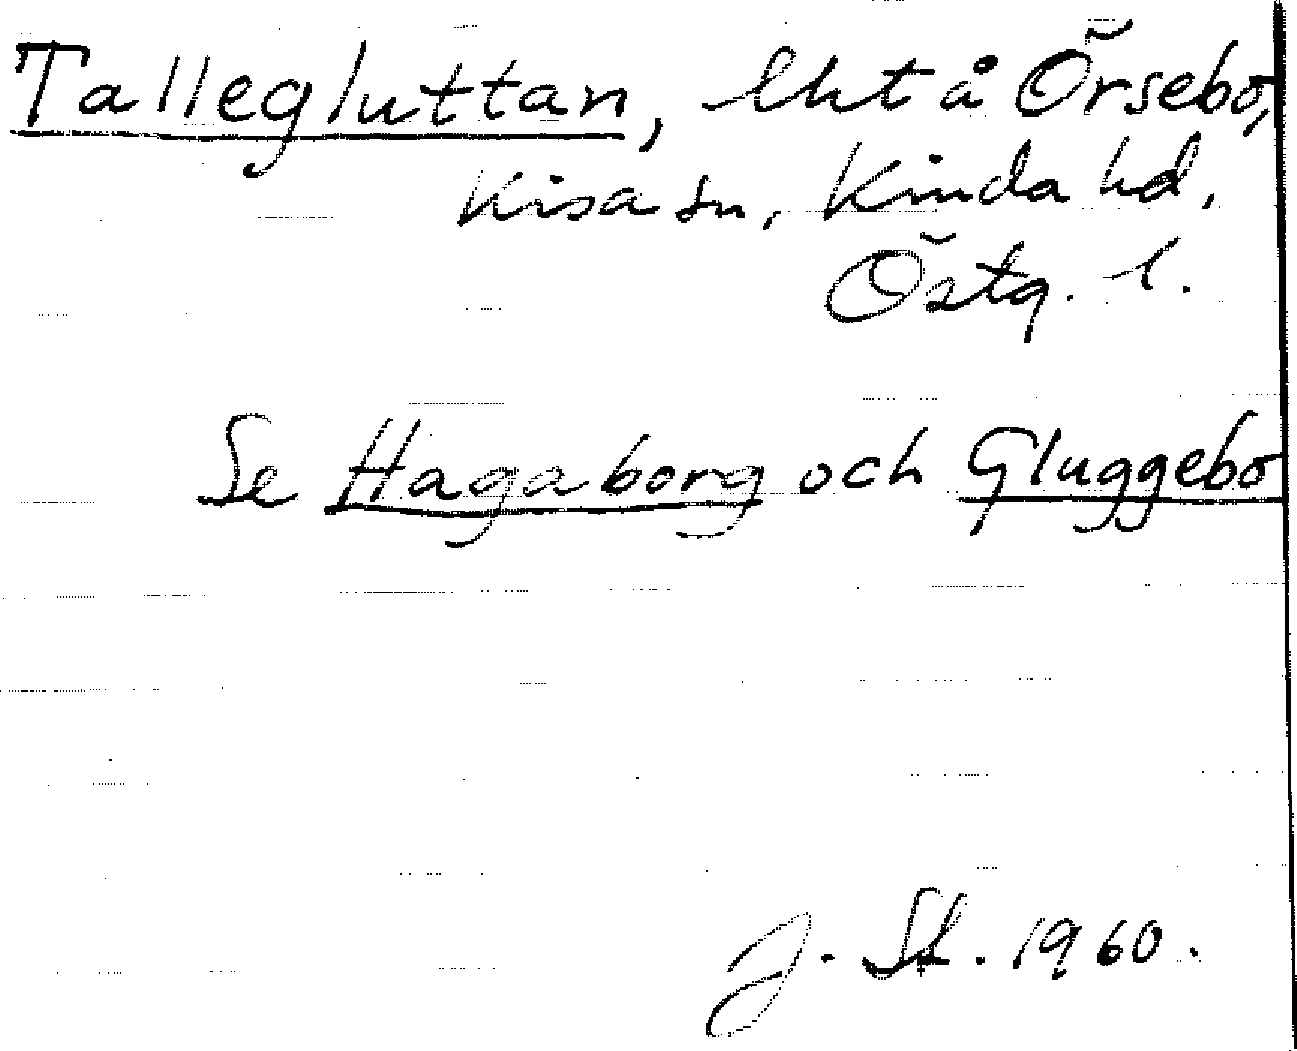 Tallegluttan, lht å Örsebo,
Kisa sn, Kinda hd,
Östg. l.
Se Hagaborg och Gluggebo
J. St. 1960.